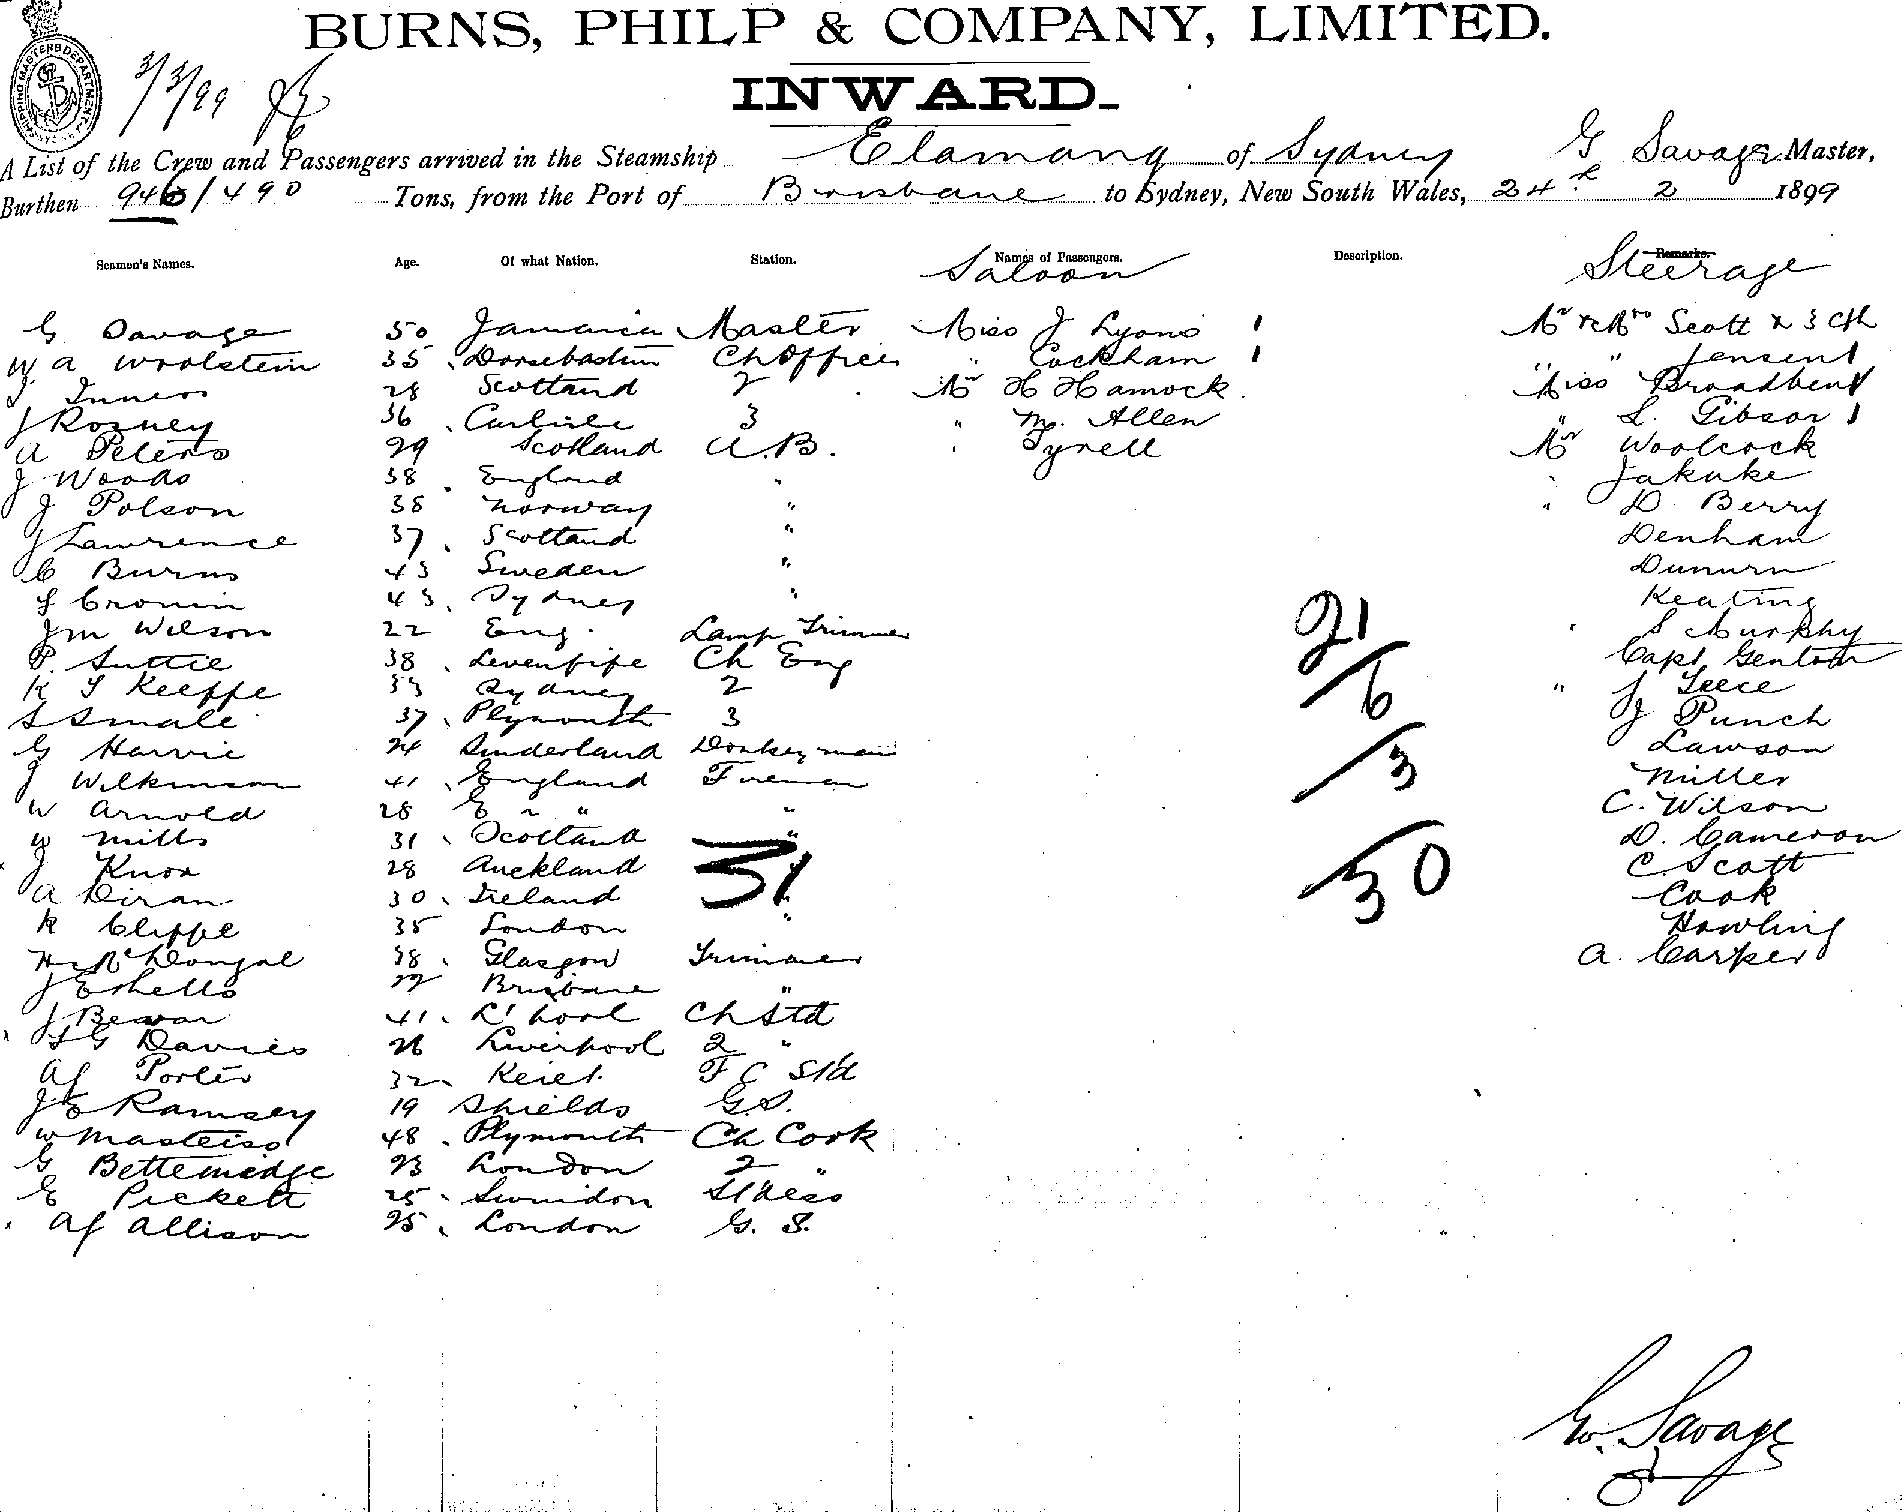 BURNS, PHILP & COMPANY, LIMITED.
INWARD.
SHIPPING MASTERS DEPARTMENT
3/3/99
A List of the Crew and Passengers arrived in the Steamship Elamang of Sydney G Savage Master,
Burthen 946/490 Tons, from the Port of Brisbane to Sydney, New South Wales, 24th 2 1899
Seamen's Names. Age. Of what Nation. Station. Names of Passengers. Description. Remarks.
Saloon Steerage
G Savage 50 Jamaica Master Miss J Lyons 1 Mr & Mrs Scott & 3 Ch
W A Woolstein 35 Ch Officer " Cockham 1 " " Jensen 1
J Innes 28 Scotland 2 Mr H Hamock Miss Broadbent 1
J Rosney 36 Carlisle 3 " M. Allen " L. Gibson 1
A Peters 29 Scotland A.B. " Tyrell Mr Woolcock
J Woods 38 England " " Jakuke
J Polson 38 Norway " " D Berry
J Lawrence 37 Scotland " Denham
C Burns 43 Sweden "
J Cronin 43 Sydney " Keating
J M Wilson 22 Eng. Lamp Trimmer S Murphy
P. Suttie 38 Ch Eng Capt Genton
K S Keeffe 33 Sydney 2 " J Leece
S Smale 37 Plymouth 3 J Punch
G Harvie 24 Sunderland Donkeyman Lawson
J Wilkinson 41 England Fireman Miller
W Arnold 28 E " " " C. Wilson
W Mills 31 Scotland " D. Cameron
J Knox 28 Auckland C Scott
A Diran 30 Ireland Cook
R Cliffe 35 London " Howling
H McDougal 38 Glasgow Trimmer A. Carker
J Eshells 22 Brisbane "
J Bevan 41 L'pool Ch Std
G Davies 26 Liverpool 2 "
Af Porter 32 F C Std
J E Ramsey 19 Shields G.S.
W Masters 48 Plymouth Ch Cook
G Betteridge 23 London 2 "
E Pickett 25 Swindon St'dess
Af Allison 25 London G. S.
31
21
6
3
30
G. Savage